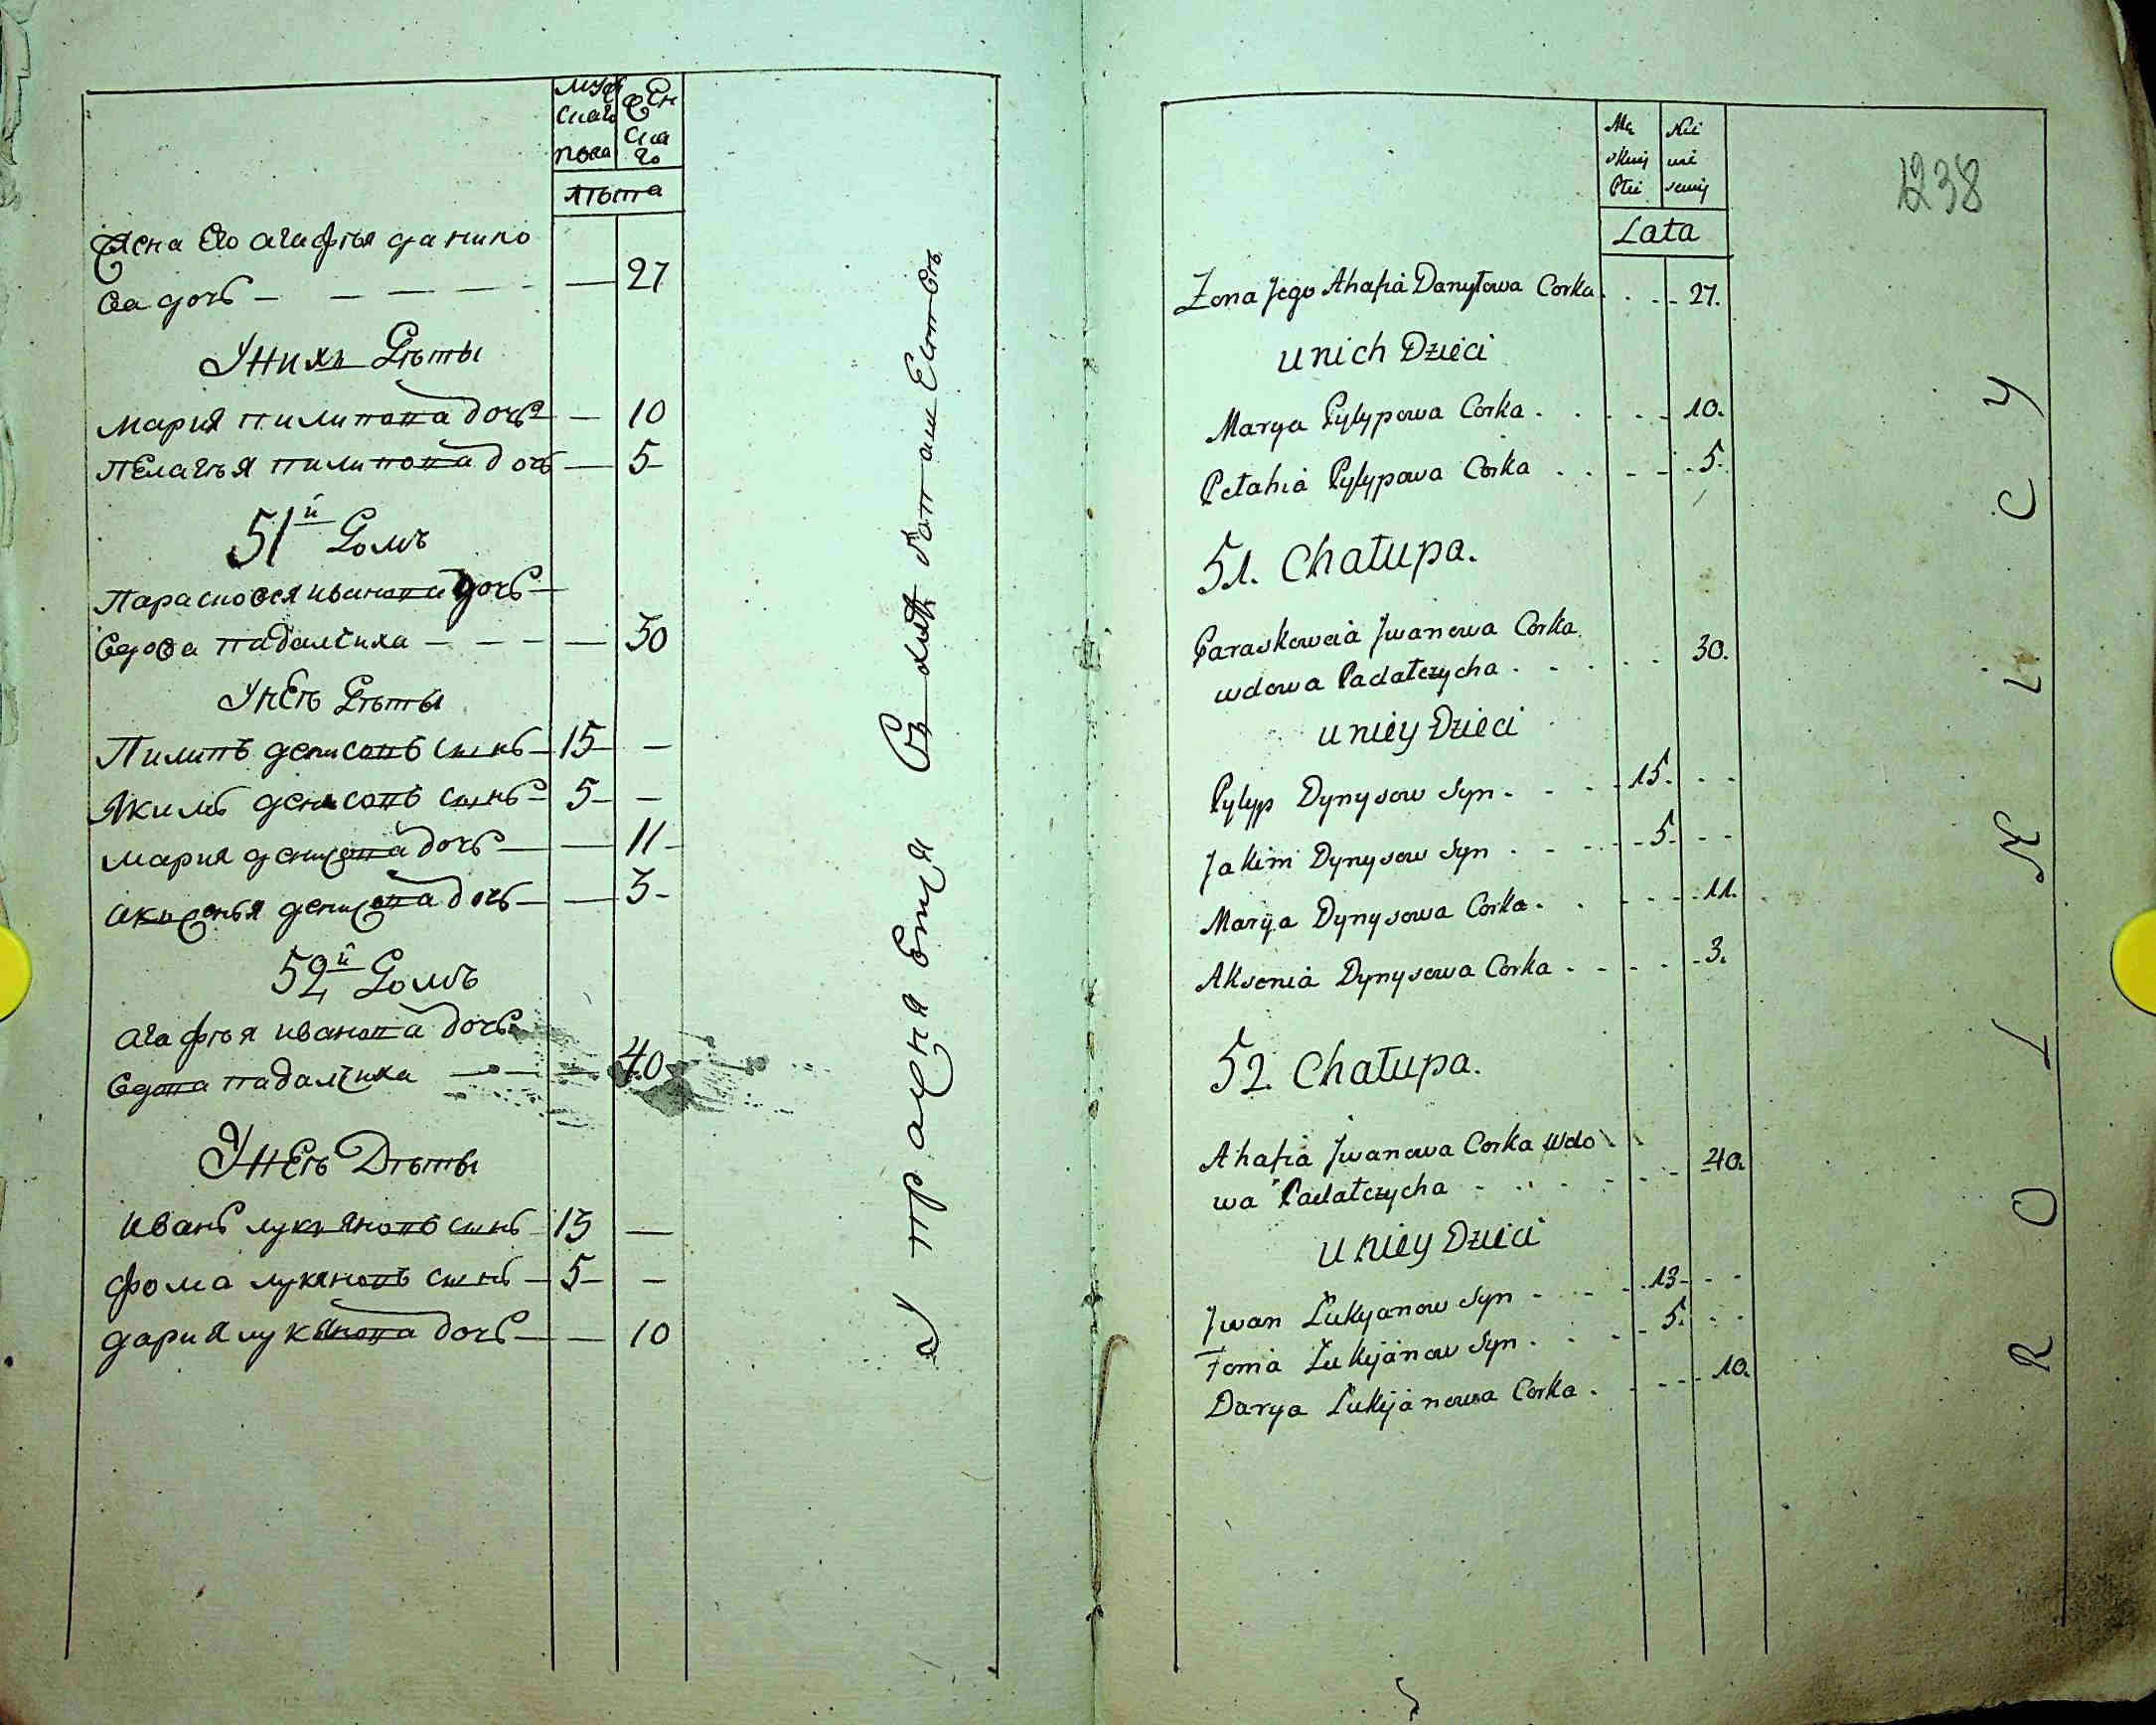 мужскаго пола
Женскаго
лѣта
Жена Его агафья данило
ва дочь — — — — — 27
Унихъ Дѣты
мария пилипова дочь — — 10
Пелагѣя пилипова дочь — 5
51й Домъ
Парасковея иванова дочь —
вдова падалчиха — — — — 30
Унеѣ Дѣты
Пилипъ денисовъ синъ — 15 —
Якимъ денисовъ синъ — 5 —
мария денисова дочь — — 11
аксенья денисова дочь — — 3
52й Домъ
агафья иванова дочь
вдова падалчиха — — — 40
Унеѣ Дѣты
иванъ лукяновъ синъ 13 —
фома лукяновъ синъ — 5 —
дария лукянова дочь — — 10
Męskiej Płci
Niewieściej
Lata
1238
Zona Jego Ahafia Danyłowa Corka . . . 27.
unich Dzieci
Marya Pylypowa Corka . . . . . 10.
Pełahia Pylypowa Corka . . . . . 5.
51. Chałupa.
Paraskoweia Jwanowa Corka
wdowa Padałczycha . . . . . 30.
uniey Dzieci
Pylyp Dynysow Syn . . . . 15. . .
Jakim Dynysow Syn . . . . 5. . .
Marya Dynysowa Corka . . . . . 11.
Aksenia Dynysowa Corka . . . . . 3.
52. Chałupa.
Ahafia Jwanowa Corka wdo
wa Padałczycha . . . . . . 40.
uniey Dzieci
Jwan Łukyanow Syn . . . . 13 . .
Foma Łukijanow Syn . . . . 5. . .
Darya Łukijanowa Corka . . . . 10.